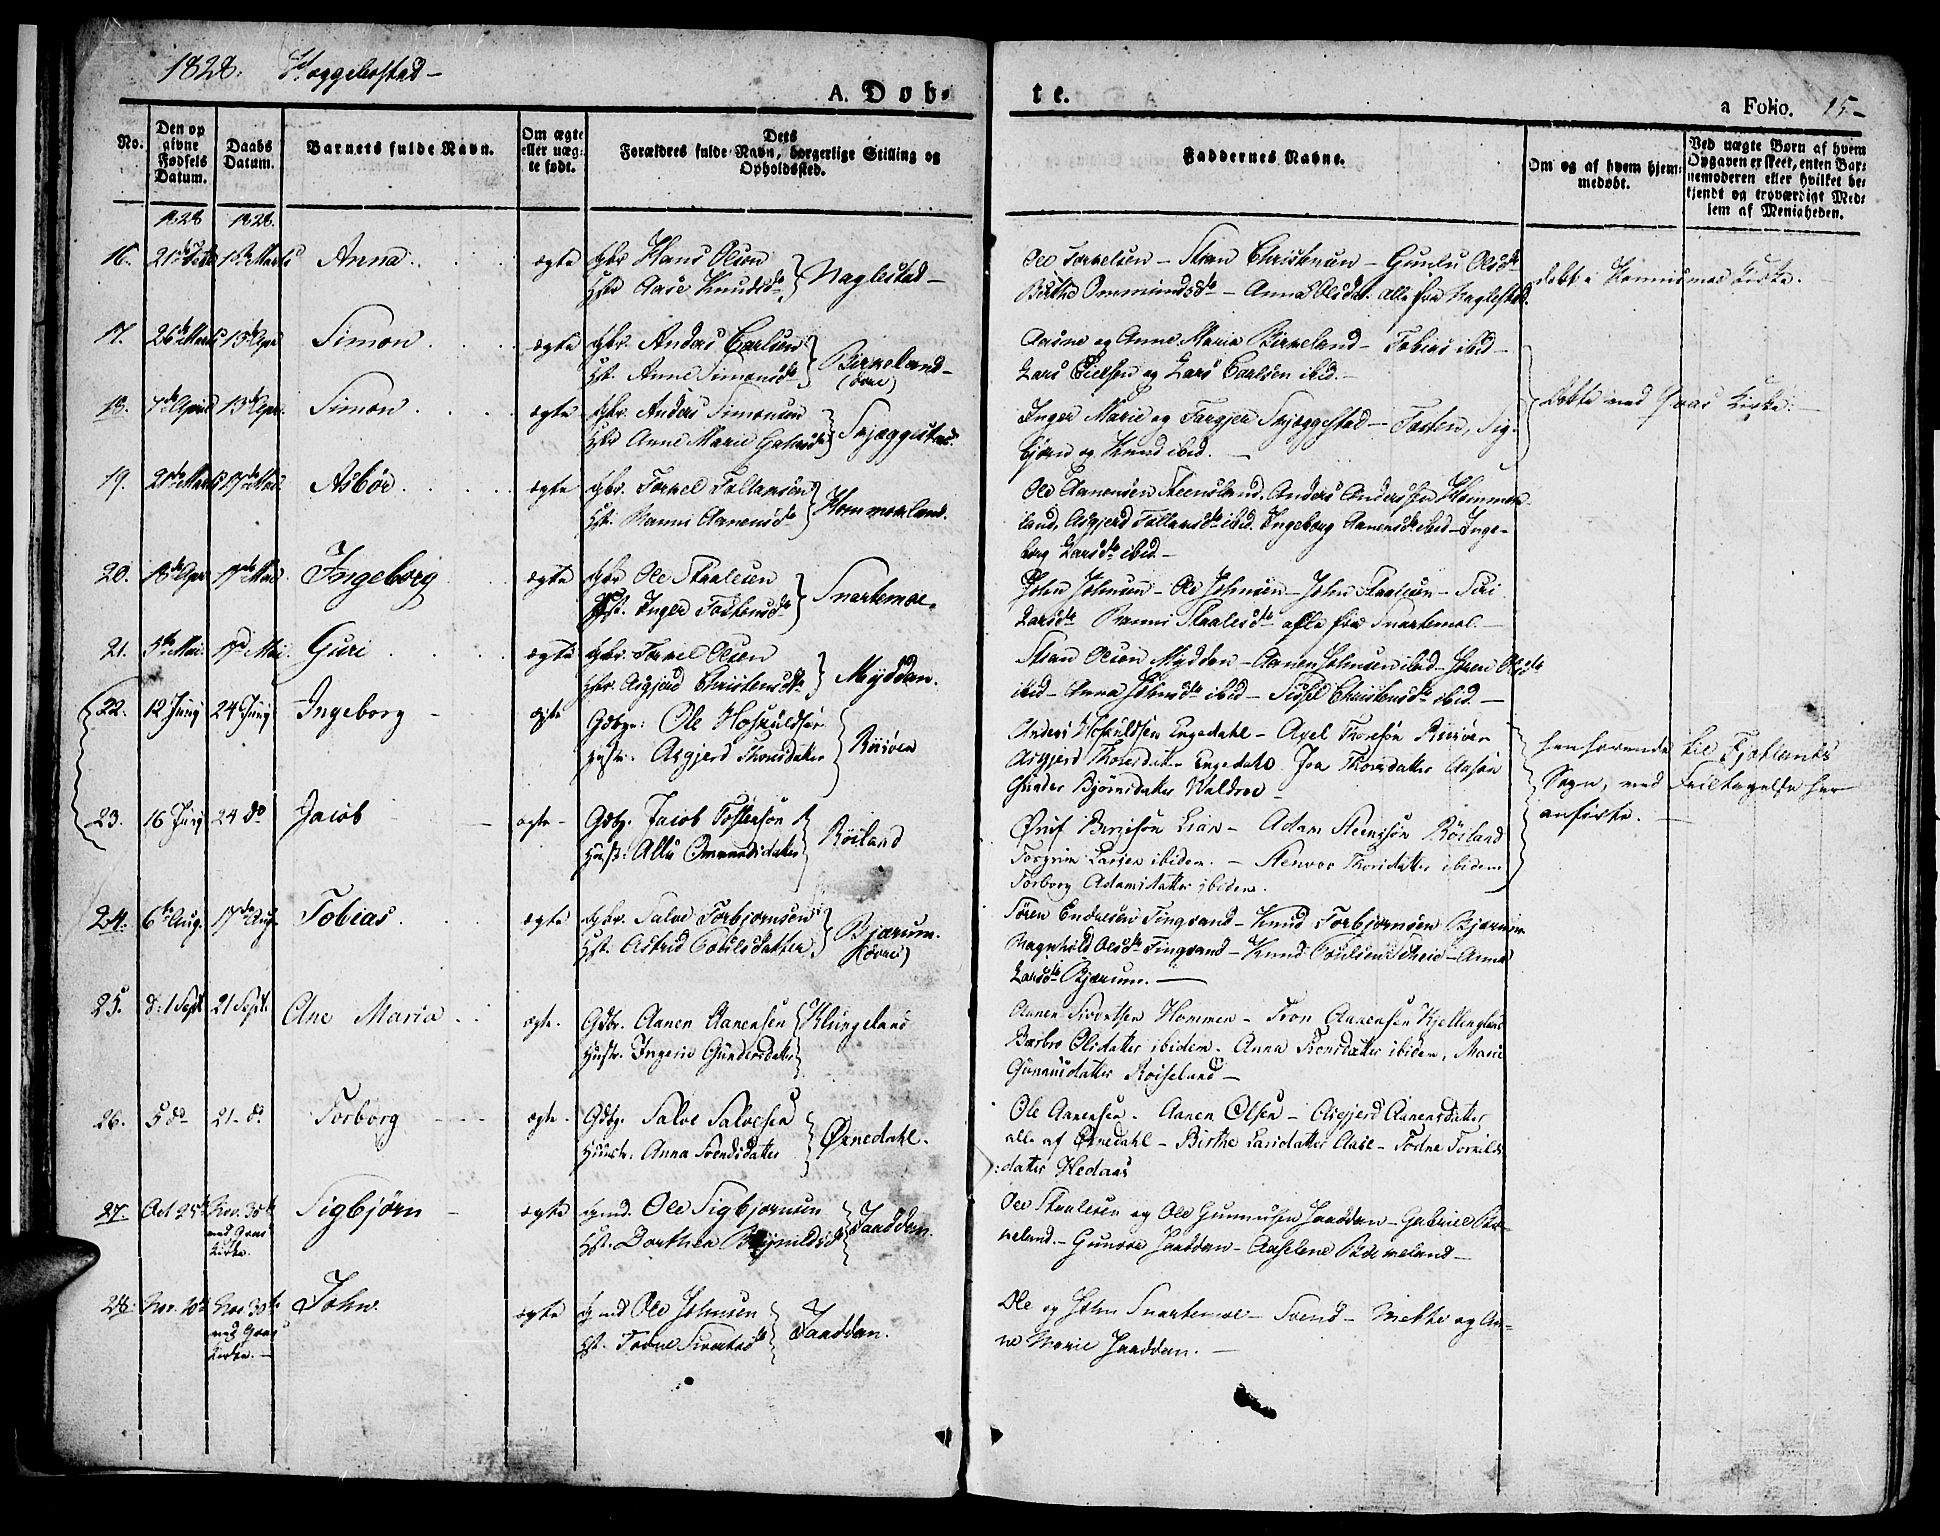 1828. Hæggebostad –
A. Døb-
te.
a Folio. 15 –
No.
Den opgivne Fødsels Datum.
Daabs Datum.
Barnets fulde Navn.
Om ægte eller uægte født.
Dets Forældres fulde Navn, borgerlige Stilling og Opholdssted.
Faddernes Navne.
Om og af hvem hjemmedøbt.
Ved uægte Børn af hvem Opgaven er skeet, enten Barnemoderen eller hvilket bekjendt og troværdigt Medlem af Menigheden.
1828 1828.
16. Anna. ægte Hans Olsen
Hst. Aase Knudsd. } Naglestad –
Ole Torkelsen – Stian Christensen – Gunlu Olsd.
Birthe Ommundsd. – Anna Olsdat. alle fra Naglestad.
17. 26de Marts 13de Apr Simon ægte Gbr. Anders Carlsen
Hst. Anne Simonsd. } Birkeland – (øvre)
og Anne Maria Birkeland – Tobias ibid –
Lars Nielsen og Lars Carlsen ibid. –
18. 7de April 13de Apr. Simon. ægte Gbr. Anders Simonsen
Hst. Anne Marie } Skjæggestad.
Inger Marie og Targjer Skjeggestad – Tosten, Sig-
bjørn og Knud ibid. –
døbte ved Qvaas Kirke. –
19. 17de Mai. Asbør. ægte Gbr. Torkel Tallaksen
Hst. Ranni Aanensd. } Hommeland.
Ole Aanensen Steensland. Anders Andersen Homme-
land, Asgjerd Tallaksd. ibid. Ingeborg Aanensd. ibid – Inge-
borg Larsd. ibid –
20. 18de Apr. 17de Mai. Ingeborg ægte Gbr Ole Staalesen
Hst. Inger Tostensd. } Snartemoe.
John Johnsen – Ole Johnsen – John Staalesen – Siri
Larsd. Ranni Staalesd. alle fra Snartemoe. –
21. 5te Mai. 17d Mai. Guri ægte Gbr. Torkel Olsen
Hst. Asgjerd Christensd. } Myddan.
Stian Olsen Myddan – Aanen Johnsen ibid – Olsd.
ibid – Anna Johnsd. ibid – Sissel Christensd. ibid. –
22. 12 Junij 24 Junij Ingeborg – ægte Gdbr: Ole Hoskuldsen
Hustr. Asgjerd Thorsdatter } Risøen
Anders Hoskuldsen Engedahl – Axel Thoresøn Risøen
Asgjerd Thorsdatter Engedahl Thorsdatter
Gunder Bjørnsdatter –
henhørende til Fjotlands
Sogn, ved Feiltagelse her
anførte. –
23. 16 Junij 24 do Jacob – ægte – Gdbr. Jacob Tostensøn
Hust. } Röiland
Lian – Adam Røiland
Torgrim Larsen ibidem. – Stenvor Thorsdatter ibidem
Torborg Adamsdatter ibidem.
24. 6te Aug. 17de Aug. Tobias. ægte Gbr. Salve Torbjørnsen
Hst. Astrid } Bjærum. (øvre)
Søren Endresen Tingvand – Knud Torbjørnsen Bjærum
Magnhild Olsd. Tingvand – Knud Poulsen Scheie – Anna
Larsd. Bjærum. –
25. d: 1 Sept. 21 Sept. Ane Maria ægte. Gdbr. Aanen Aanensen
Hustr. Ingerie Gundersdatter } Klungeland
Aanen Hommen – Tron Aanensen Kjellingland
Barbro Olsdatter ibidem. Anna Tronsdatter ibidem, Marie
Roiseland –
26. 5 do 21. do. Torborg ægte. Gdbr. Salve Salvesen
Hustr. Anna Svendsdatter } Ørnedahl.
Ole Aanensen. Aanen Olsen – Asgjerd Aanensdatter
alle af Ørnedahl – Birthe Larsdatter Aase – Todne Torkilds
:datter Hedaas
27. Oct 25 Nov. 30te ved Qvaas Kirke. Sigbjørn – ægte Gmd. Ole Sigbjørnsen
Hst. Dorthea } Jaaddan.
Ole Staalesen og Ole Gunnufsen Jaaddan – Gabriel Bir-
keland. – Gunvor Jaaddan – Aaselene Birkeland –
28. Nov. Nov. 30te ved Qvaas Kirke. – John ægte Gmd Ole Johnsen
Hst. Todne Sivertsd. } Jaaddan.
Ole og John Snartemoe – Svend – Mette og An-
ne Marie Jaaddan. –